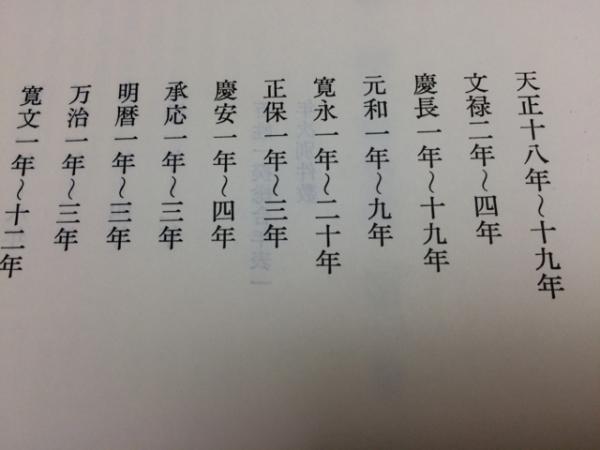 天正十八年〜十九年
文禄二年〜四年
慶長一年〜十九年
元和一年〜九年
寛永一年〜二十年
正保一年〜三年
慶安一年〜四年
承応一年〜三年
明暦一年〜三年
万治一年〜三年
寛文一年〜十二年